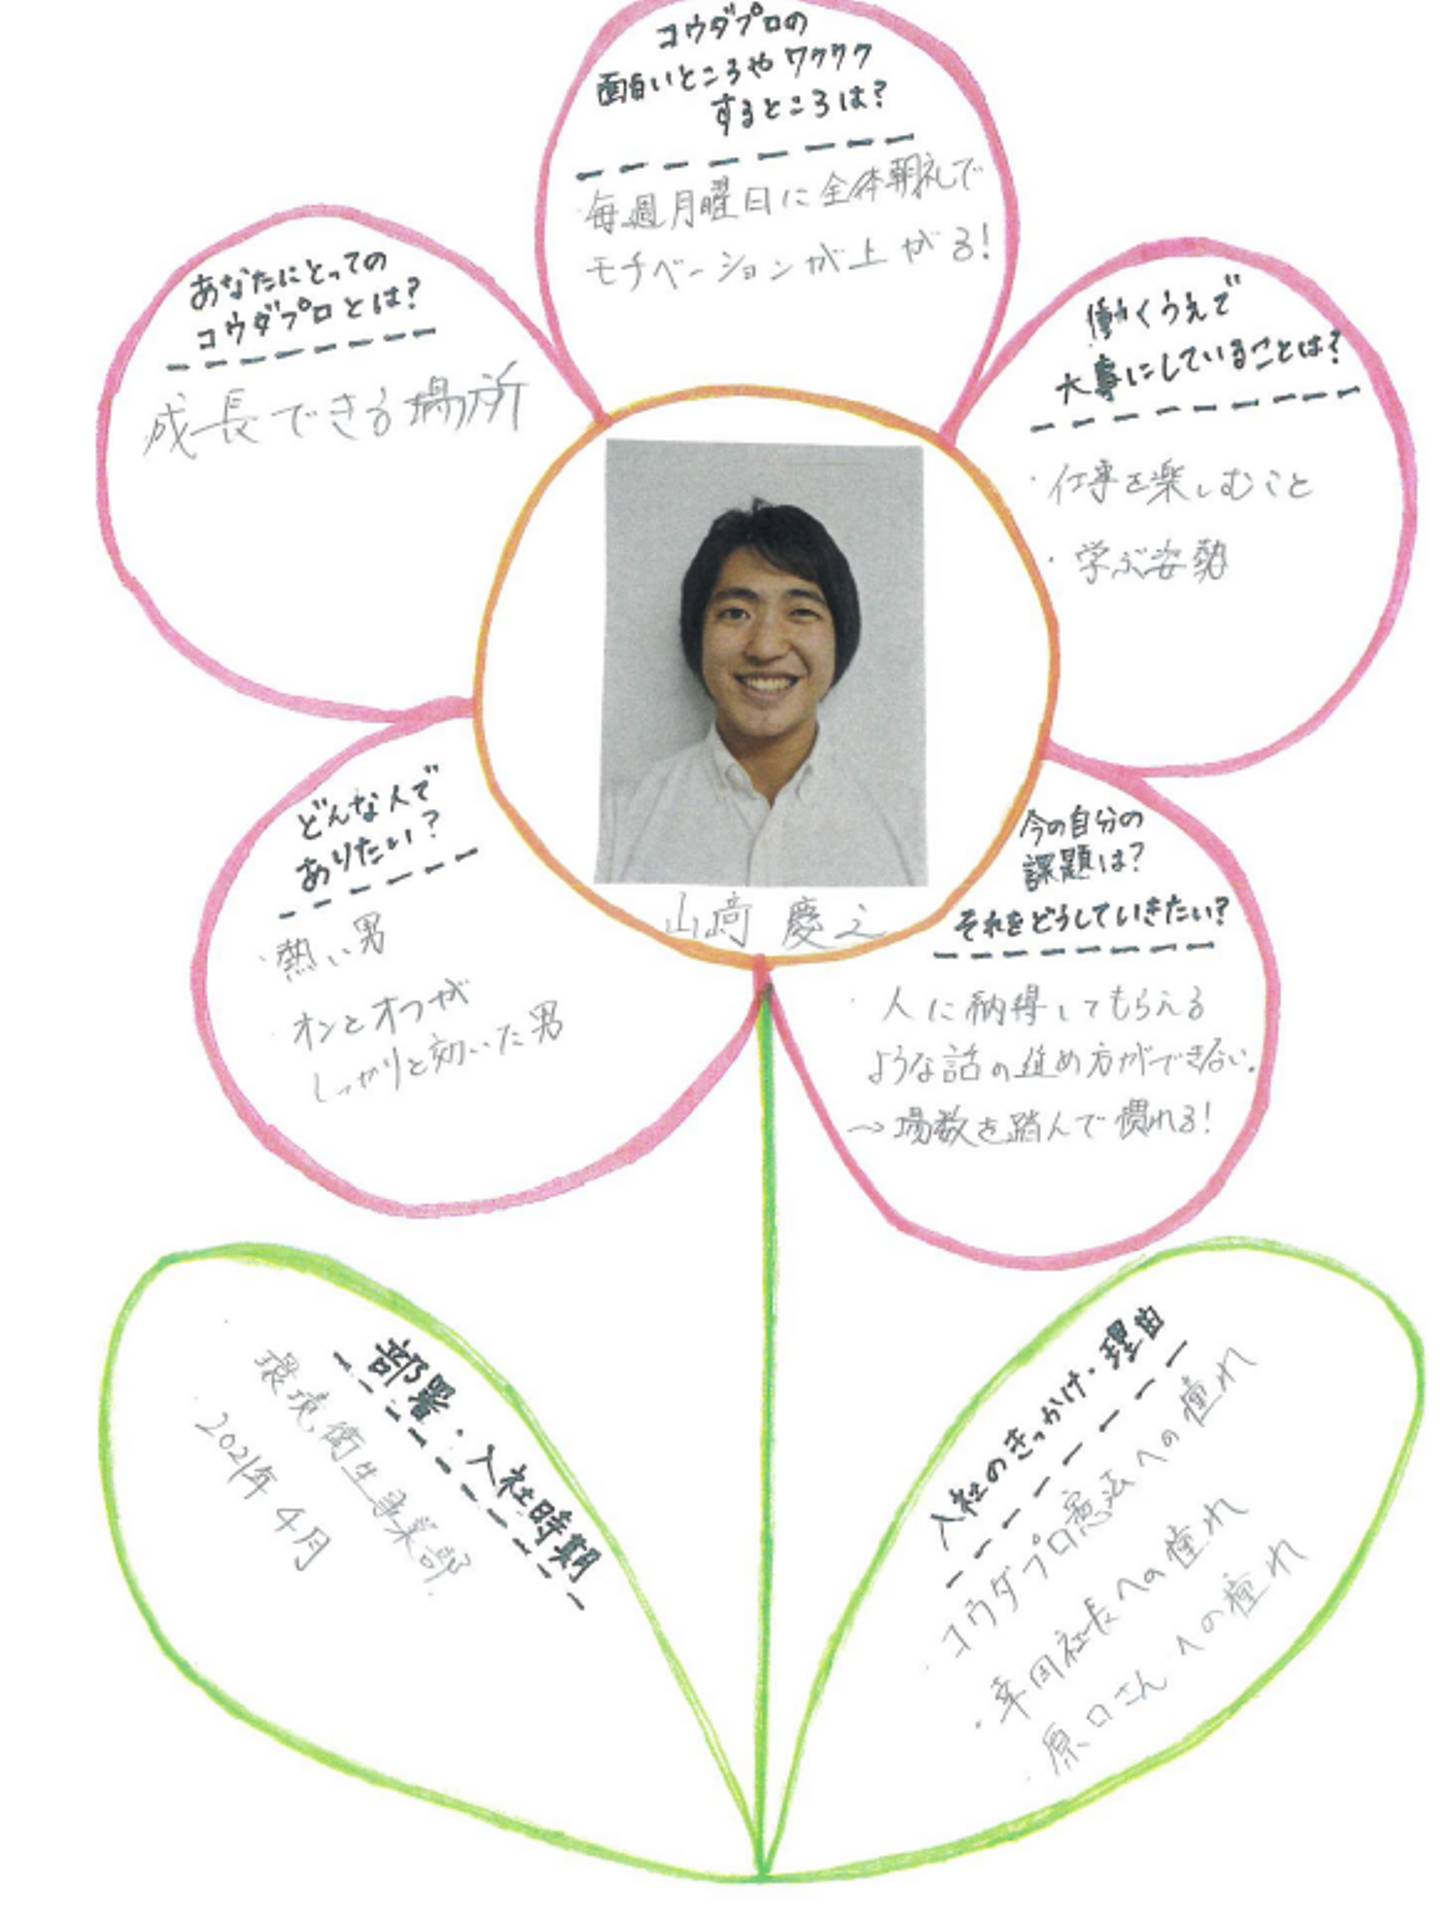 コウダプロの
面白いところやワクワク
するところは?
・毎週月曜日に全体朝礼で
モチベーションが上がる!
あなたにとっての
コウダプロとは?
成長できる場所
働くうえで
大事にしていることは?
・仕事を楽しむこと
・学ぶ姿勢
山﨑 慶之
どんな人で
ありたい?
・熱い男
・オンとオフが
しっかりと効いた男
今の自分の
課題は?
それをどうしていきたい?
・人に納得してもらえる
ような話の進め方ができない。
→場数を踏んで慣れる!
部署・入社時期
・環境衛生事業部
・2021年4月
入社のきっかけ・理由
・コウダプロ憲法への憧れ
・幸田社長への憧れ
・原口さんへの憧れ